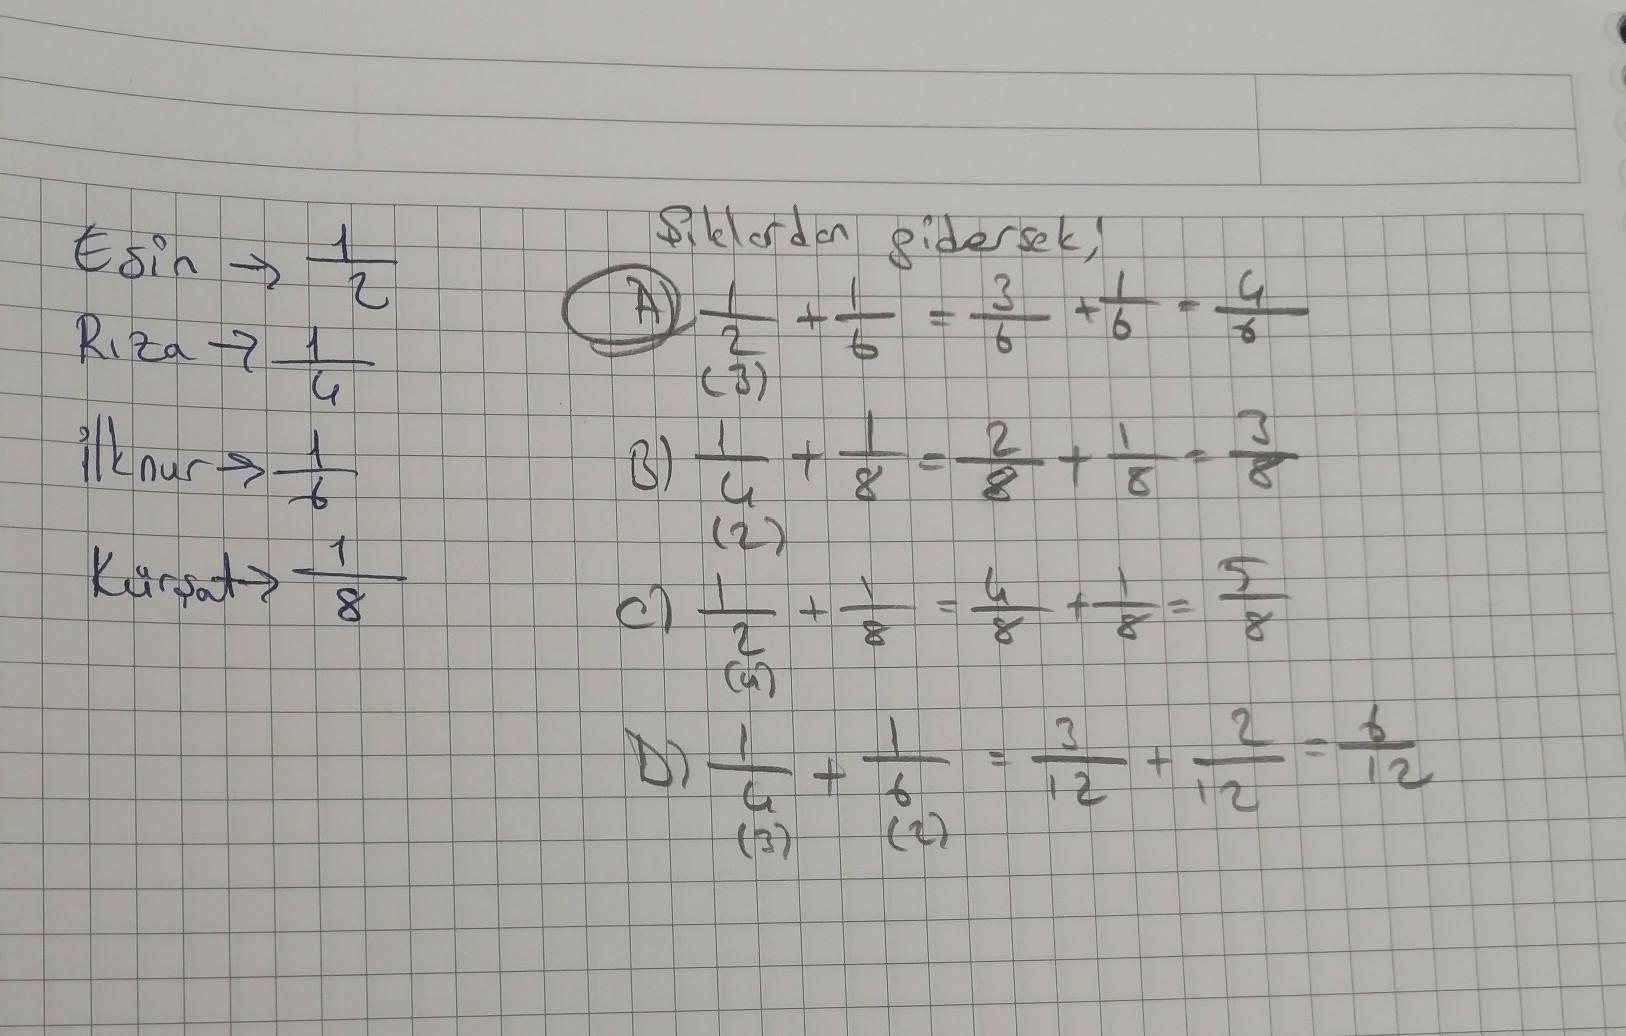 Esin → 1/2
Rıza → 1/4
ilknur → 1/6
Kürşat → 1/8
Şıklardan gidersek;
A) 1/2 + 1/6 = 3/6 + 1/6 = 4/6
(3)
B) 1/4 + 1/8 = 2/8 + 1/8 = 3/8
(2)
C) 1/2 + 1/8 = 4/8 + 1/8 = 5/8
(4)
D) 1/4 + 1/6 = 3/12 + 2/12 = 6/12
(3) (2)